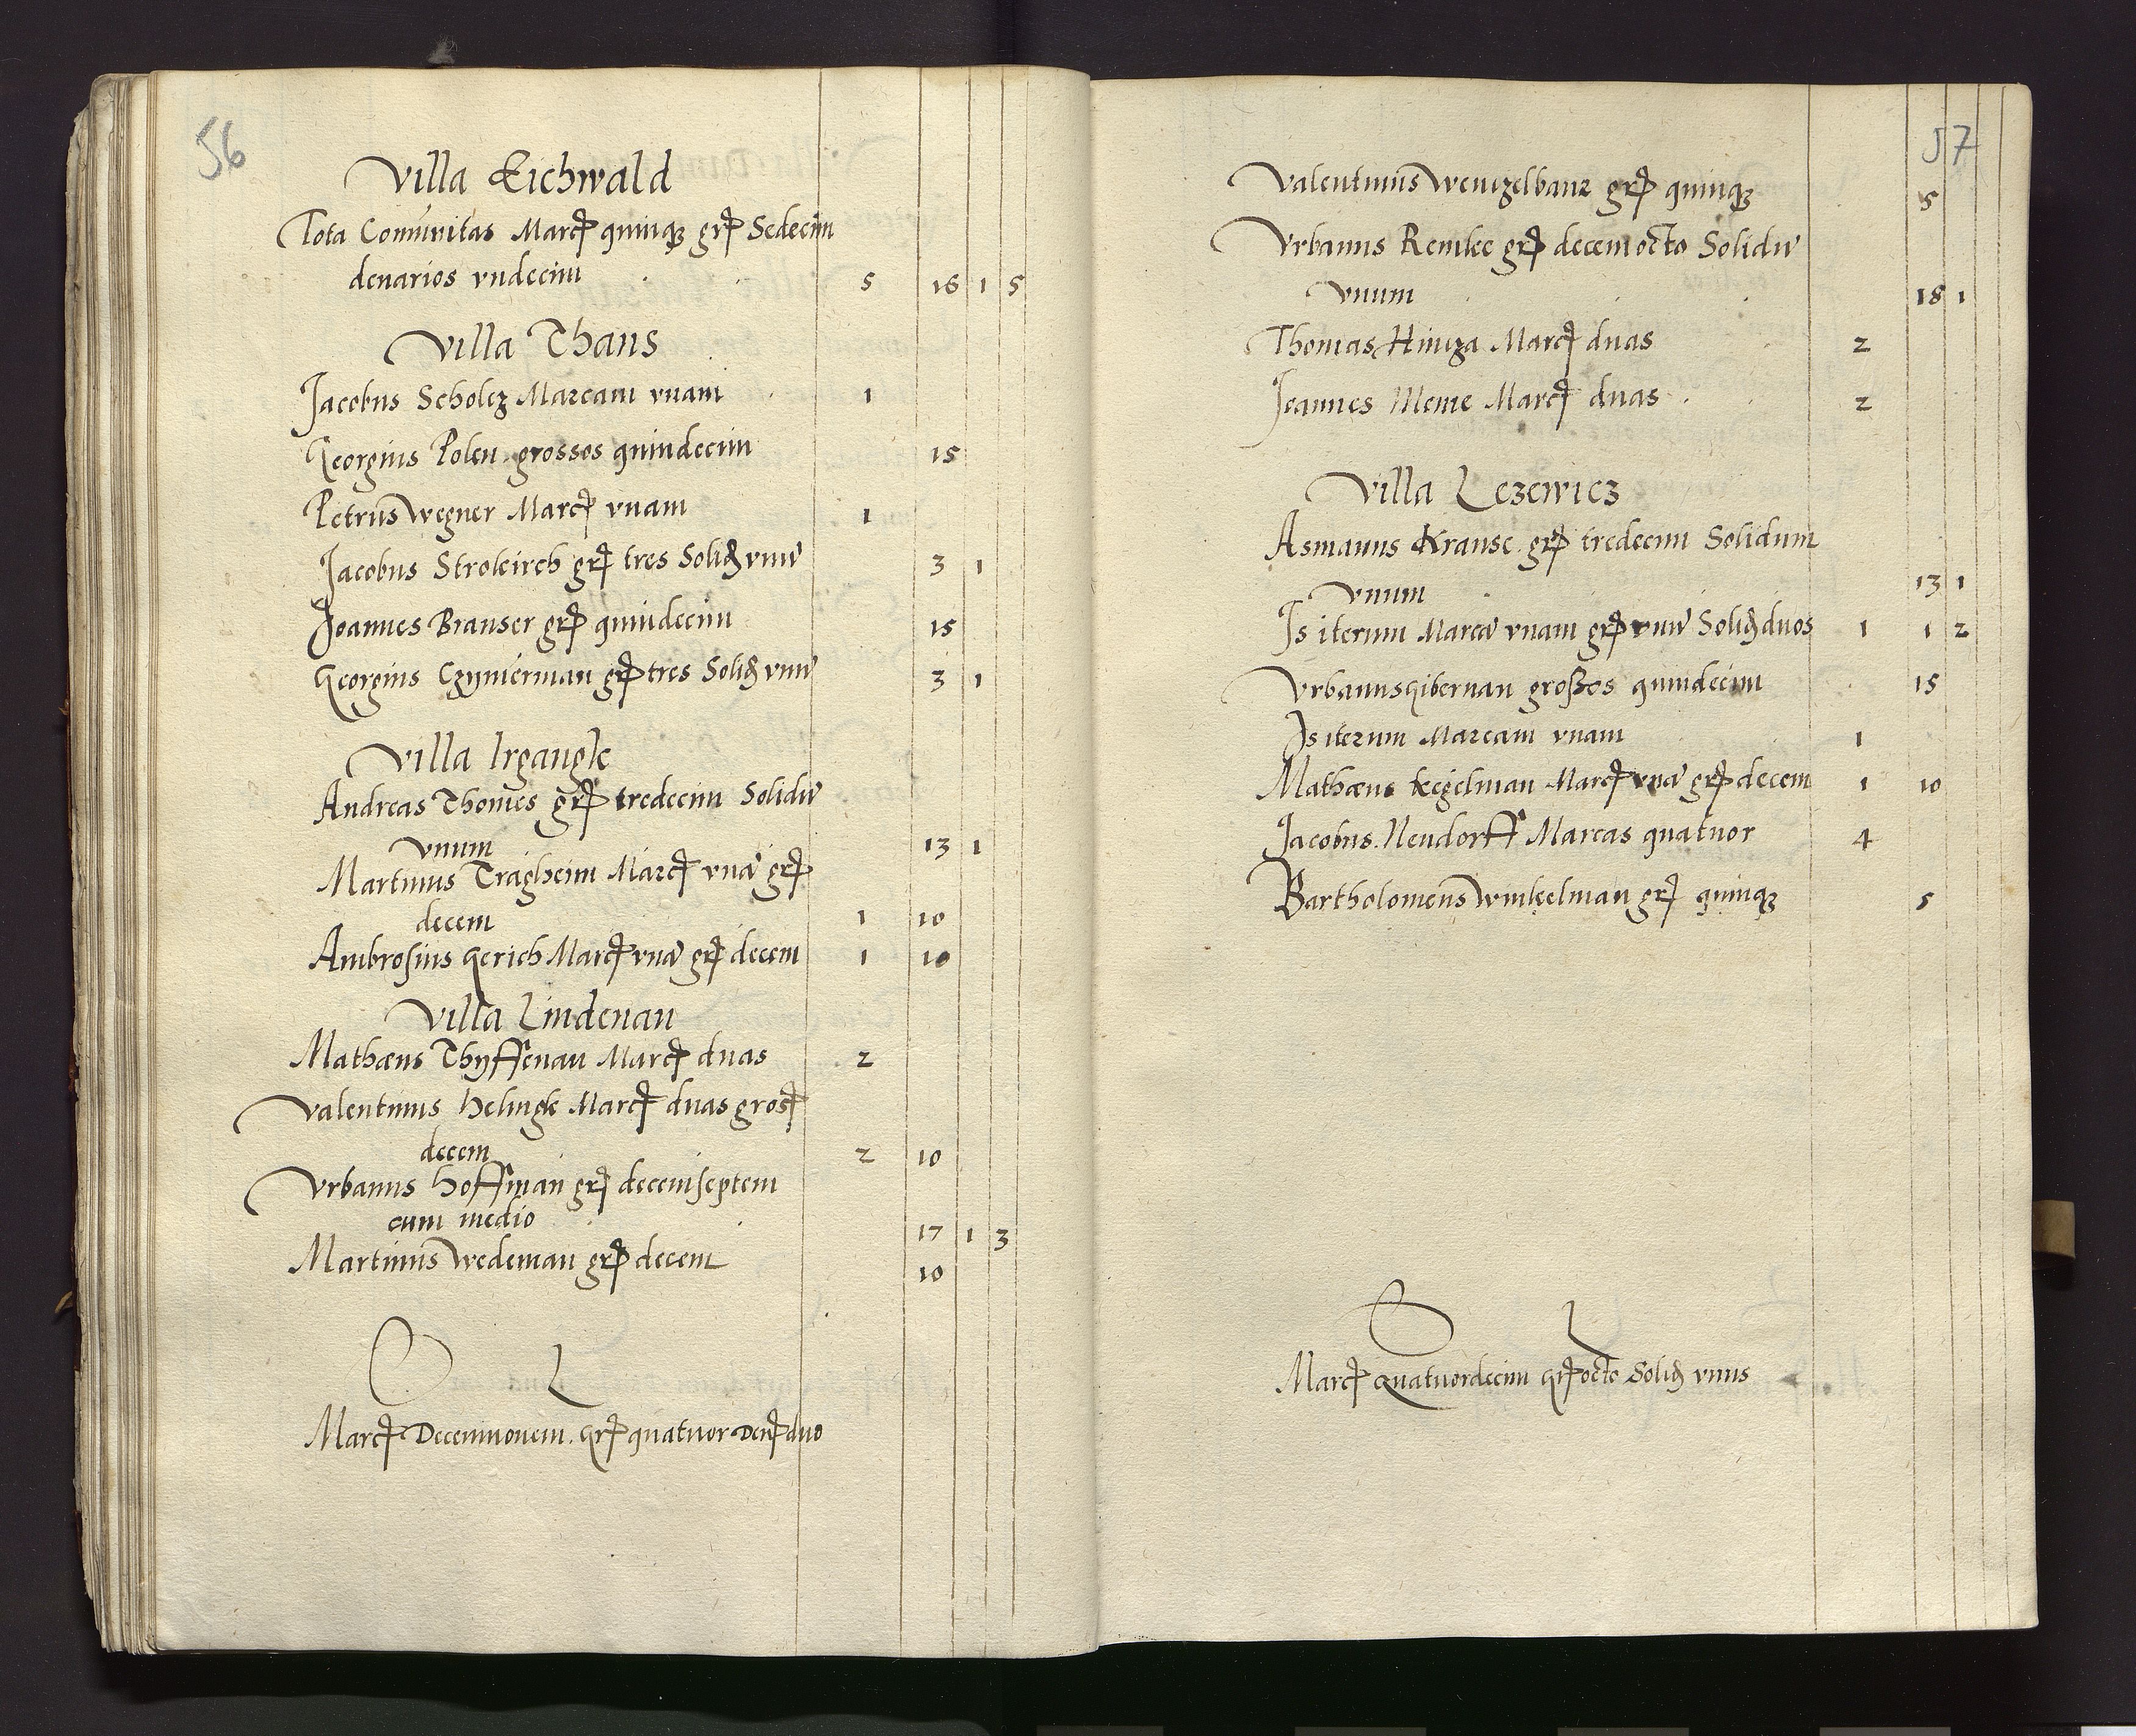 56
Villa Eichwald
Tota Comunitas Marcʒ quinqʒ grʒ Sedecim
denarios vndecim 5 16 1 5
Villa Thans
Jacobus Scholcz Marcam vnam 1
Georgius Polen grossos quindecim 15
Petrus Wegner Marcʒ vnam 1
Jacobus Strokirch grʒ tres Solidʒ vnū 3 1
Joannes Brauser grʒ quindecim 15
Georgius Czymerman grʒ tres Solidʒ vnū 3 1
Villa Irgangk
Andreas Thomes grʒ tredecim Solidū
vnum 13 1
Martinus Tragheim Marcʒ vnā grʒ
decem 1 10
Ambrosius Gerich Marcʒ vnā grʒ decem 1 10
Villa Lindenau
Mathæus Thyffenau Marcʒ duas 2
Valentinus Helingk Marcʒ duas grosʒ
decem 2 10
Vrbanus Hoffman grʒ decemseptem
cum medio 17 1 3
Martinus Wedeman grʒ decem 10
Marcʒ Decemnouem Grʒ quatuor Denʒ duo
57
Valentinus Wenczelbaur grʒ quinqʒ 5
Vrbanus Remke grʒ decemocto Solidū
vnum 18 1
Thomas Hincza Marcʒ duas 2
Joannes Meme Marcʒ duas 2
Villa Lezewicz
Asmanns Krause grʒ tredecim Solidum
vnum 13 1
Is iterum Marcā vnam grʒ vnū Solidʒ duos 1 1 2
Vrbanus Giberman großos quindecim 15
Is iterum Marcam vnam 1
Mathæus Kegelman Marcʒ vnā grʒ decem 1 10
Jacobus Neudorff Marcas quatuor 4
Bartholomeus Winkelman grʒ quinqʒ 5
Marcʒ Quatuordecim Grʒ octo Solidʒ vnus